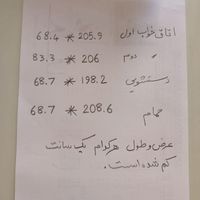 اتاق خواب اول 205.9 * 68.4
〃 دوم 206 * 83.3
دستشویی 198.2 * 68.7
حمام 208.6 * 68.7
عرض و طول هرکدام یک سانت
کم شده است.